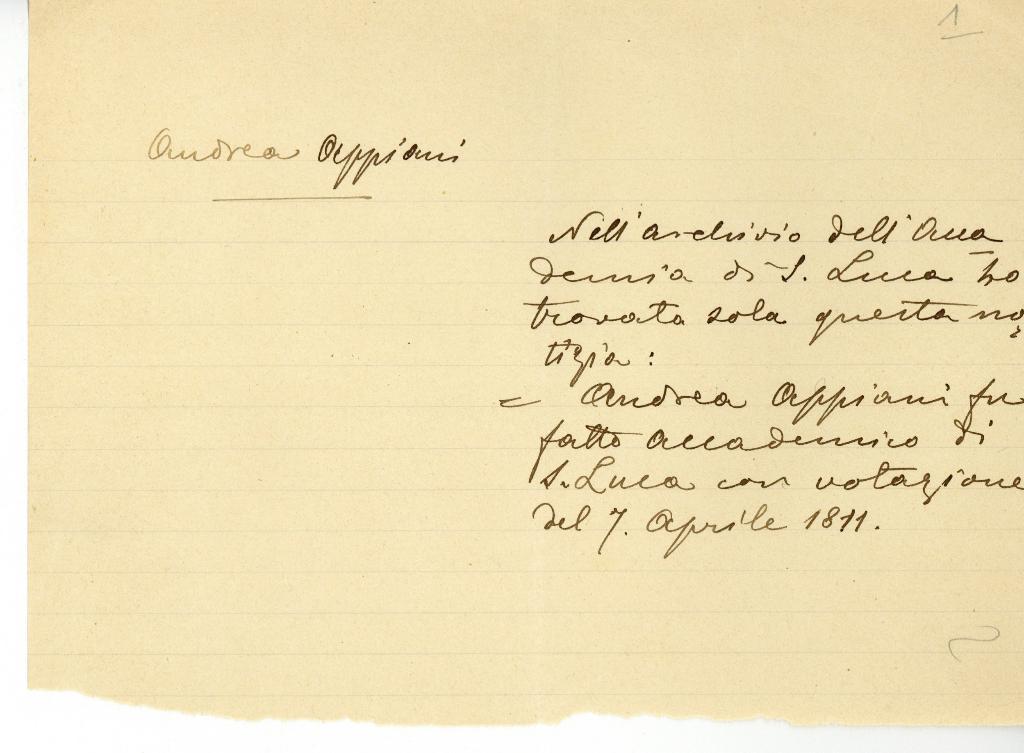 1
Andrea Appiani
Nell'archivio dell'Acca
demia di S. Luca ho
trovata sola questa no
tizia:
= Andrea Appiani fu
fatto accademico di
S. Luca con votazione
del 7. Aprile 1811.